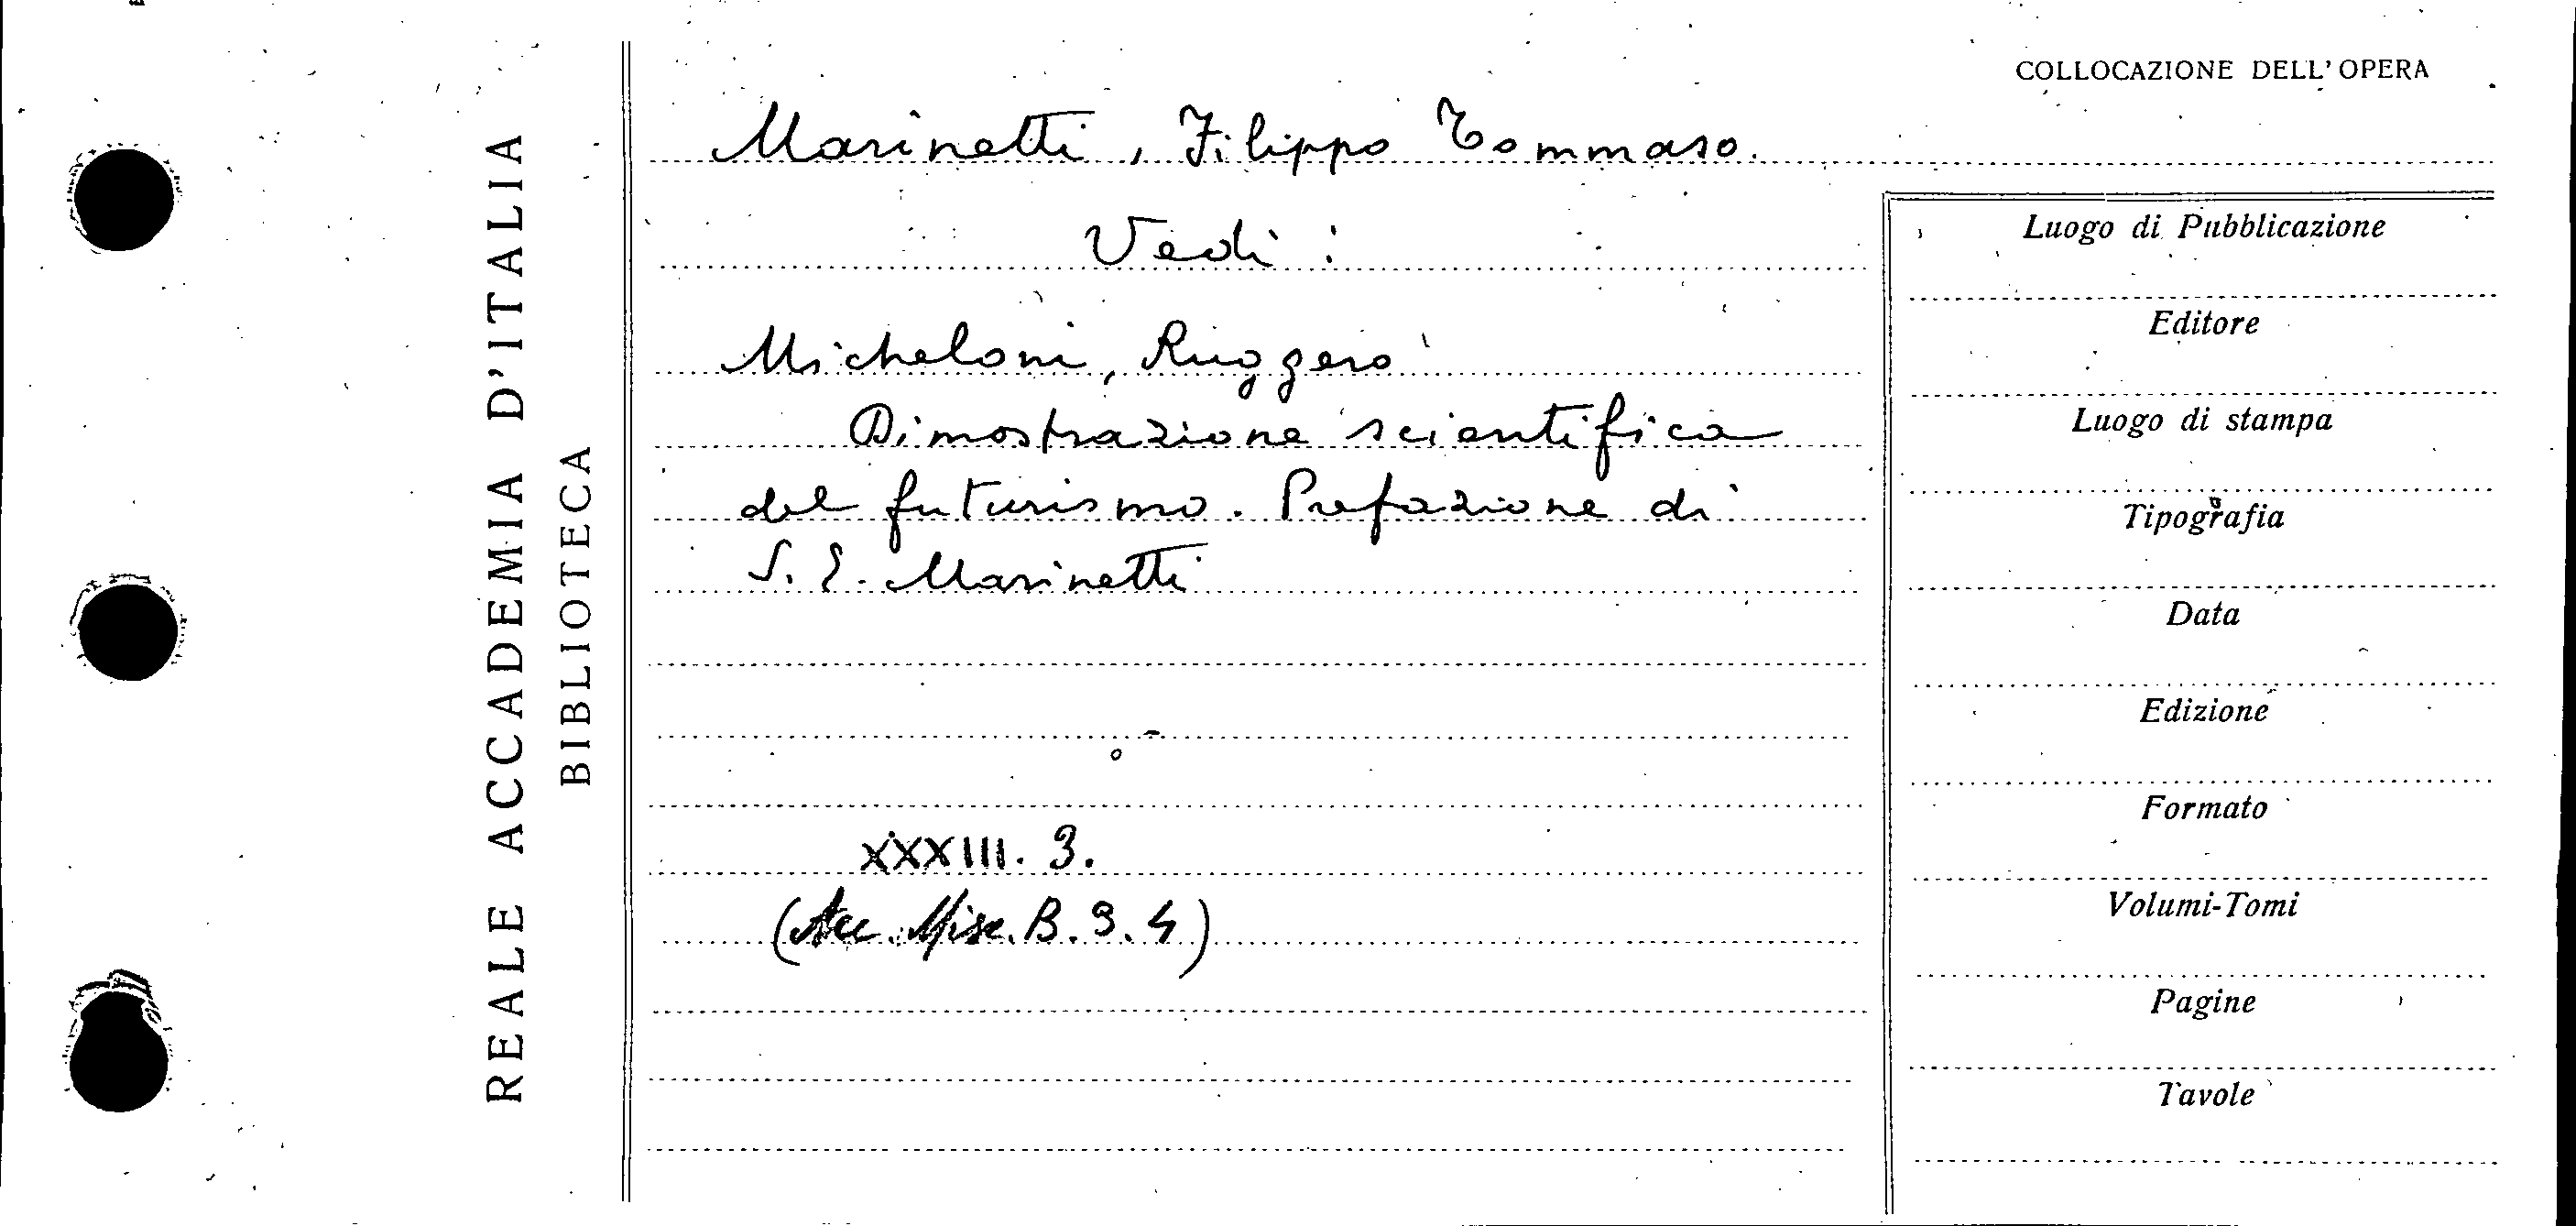 REALE ACCADEMIA D'ITALIA
BIBLIOTECA
COLLOCAZIONE DELL'OPERA
Marinetti, Filippo Tommaso.
Vedi:
Micheloni, Ruggero
Dimostrazione scientifica
del futurismo. Prefazione di
S. E. Marinetti
XXXIII. 3.
(Acc. Misc. B. 3. 4)
Luogo di Pubblicazione
Editore
Luogo di stampa
Tipografia
Data
Edizione
Formato
Volumi-Tomi
Pagine
Tavole